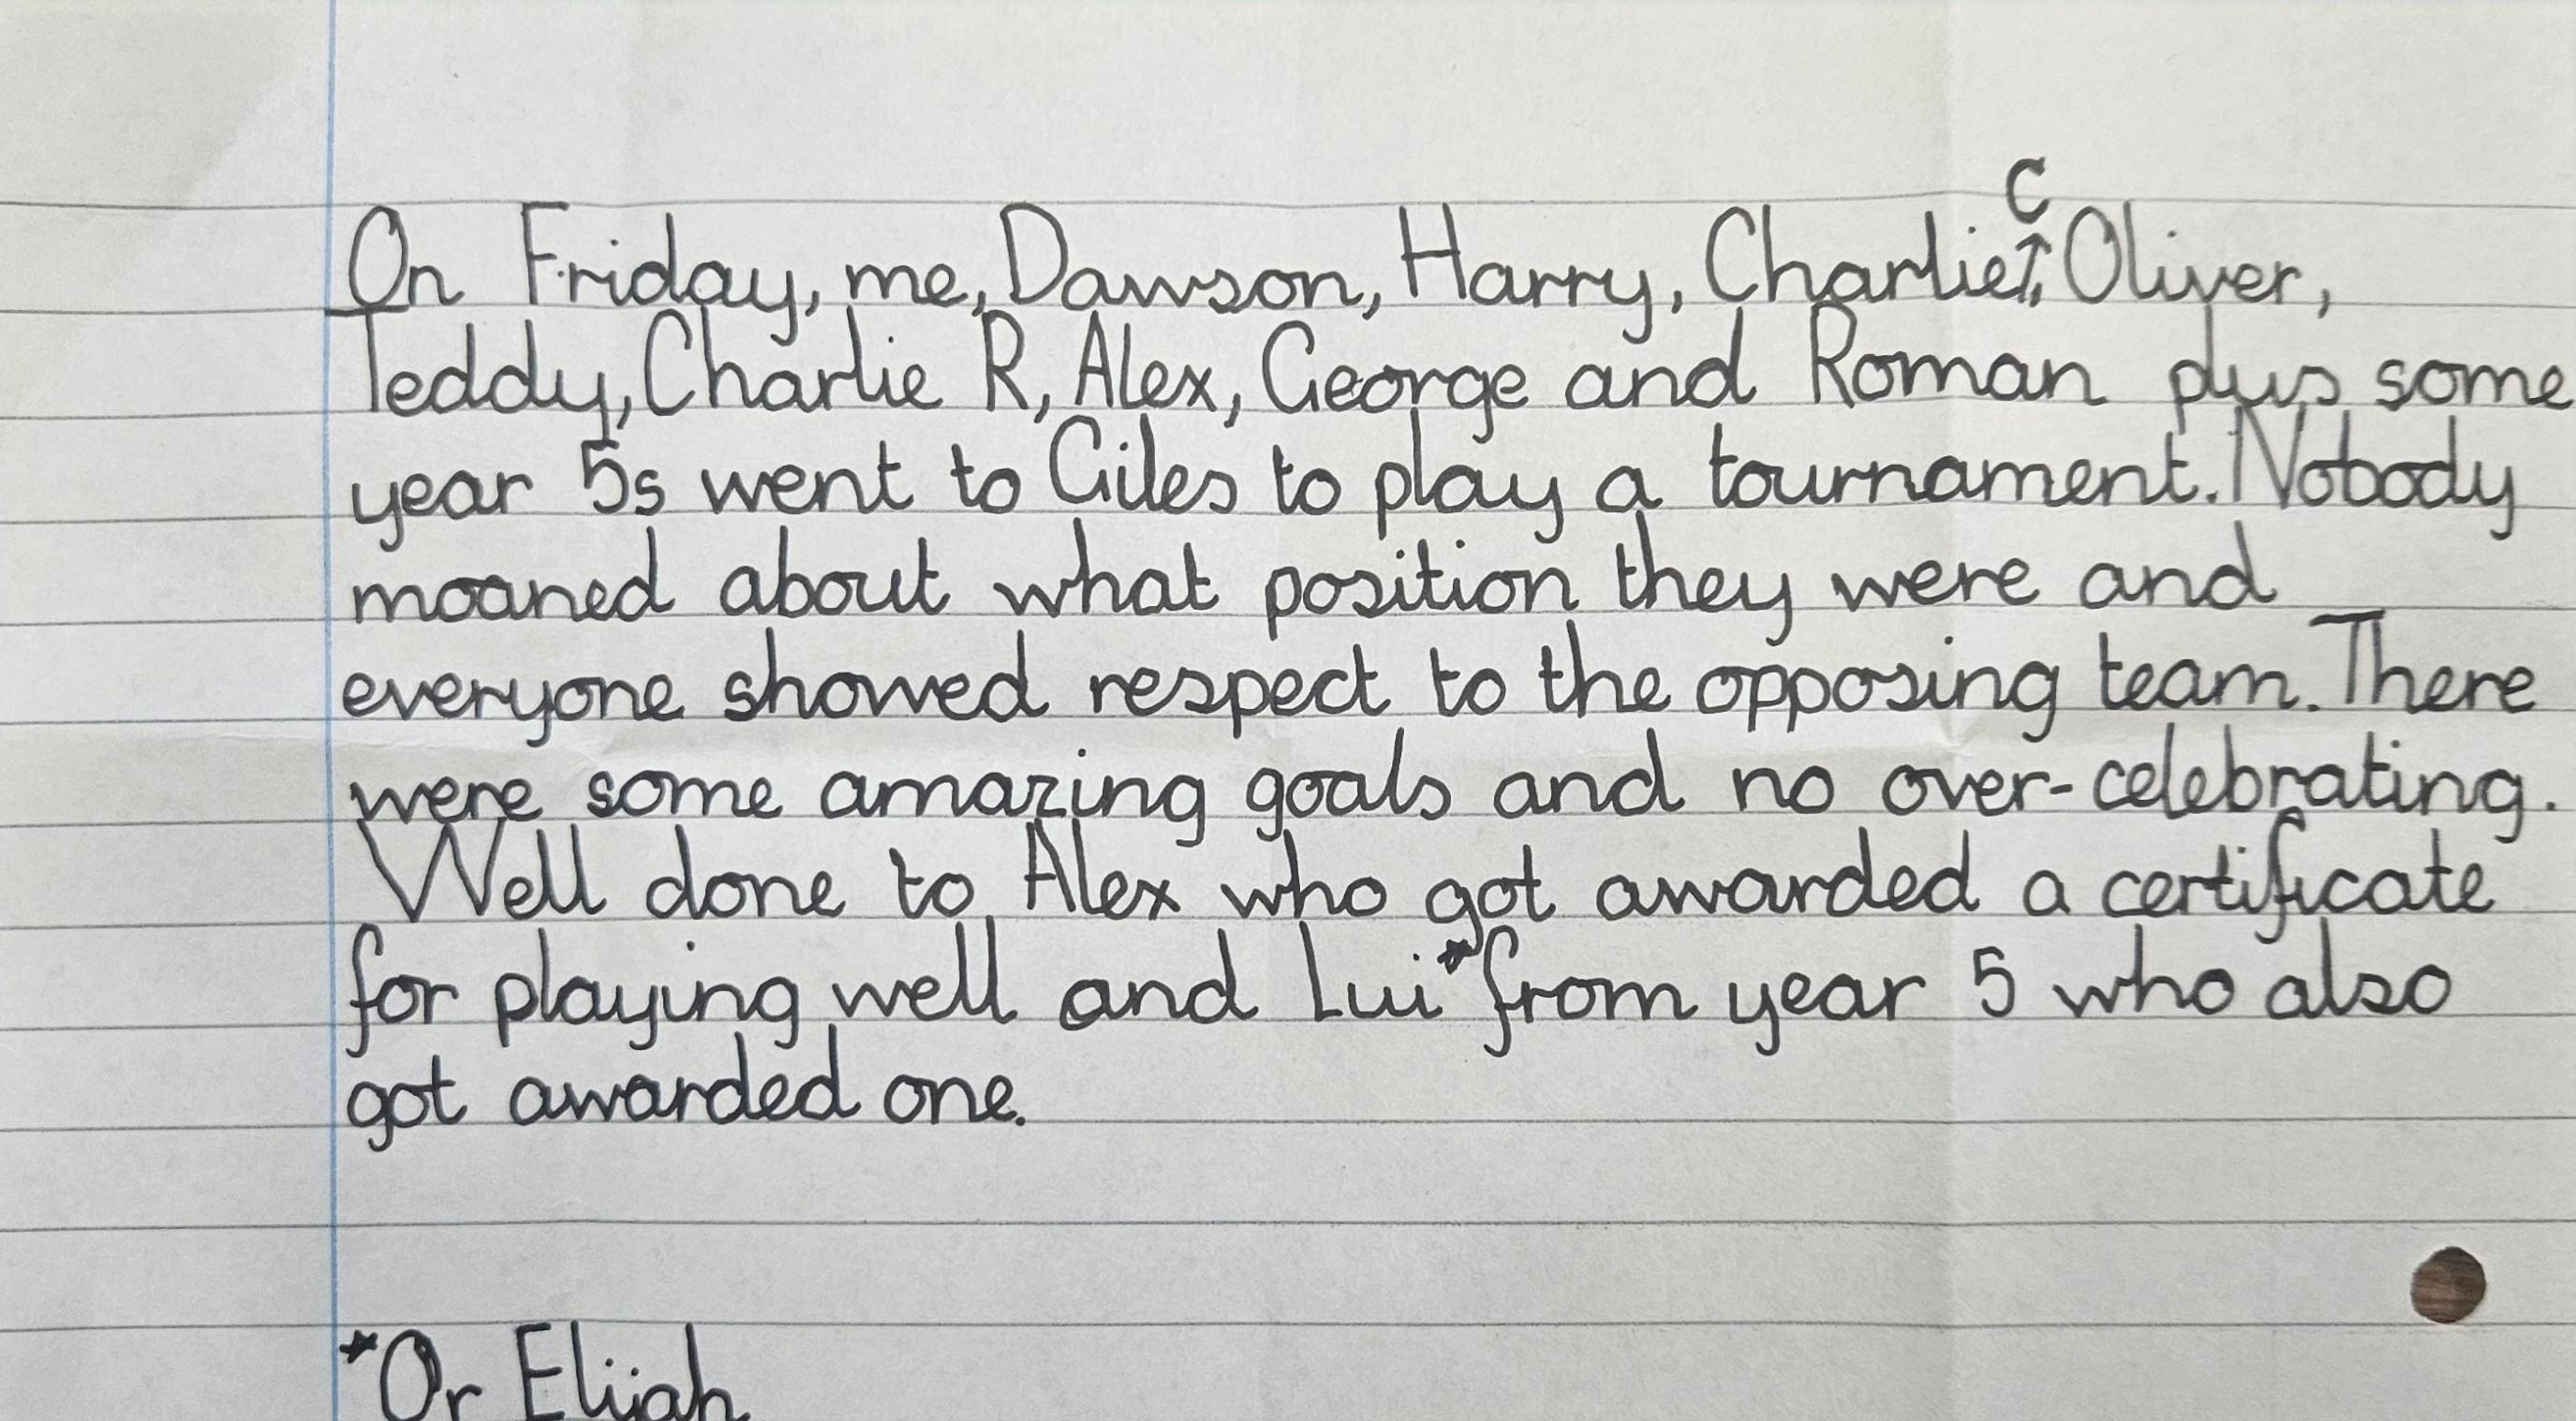 On Friday, me, Dawson, Harry, Charlie C, Oliver,
Teddy, Charlie R, Alex, George and Roman plus some
year 5s went to Giles to play a tournament. Nobody
moaned about what position they were and
everyone showed respect to the opposing team. There
were some amazing goals and no over-celebrating.
Well done to Alex who got awarded a certificate
for playing well and Lui* from year 5 who also
got awarded one.
*Or Elijah